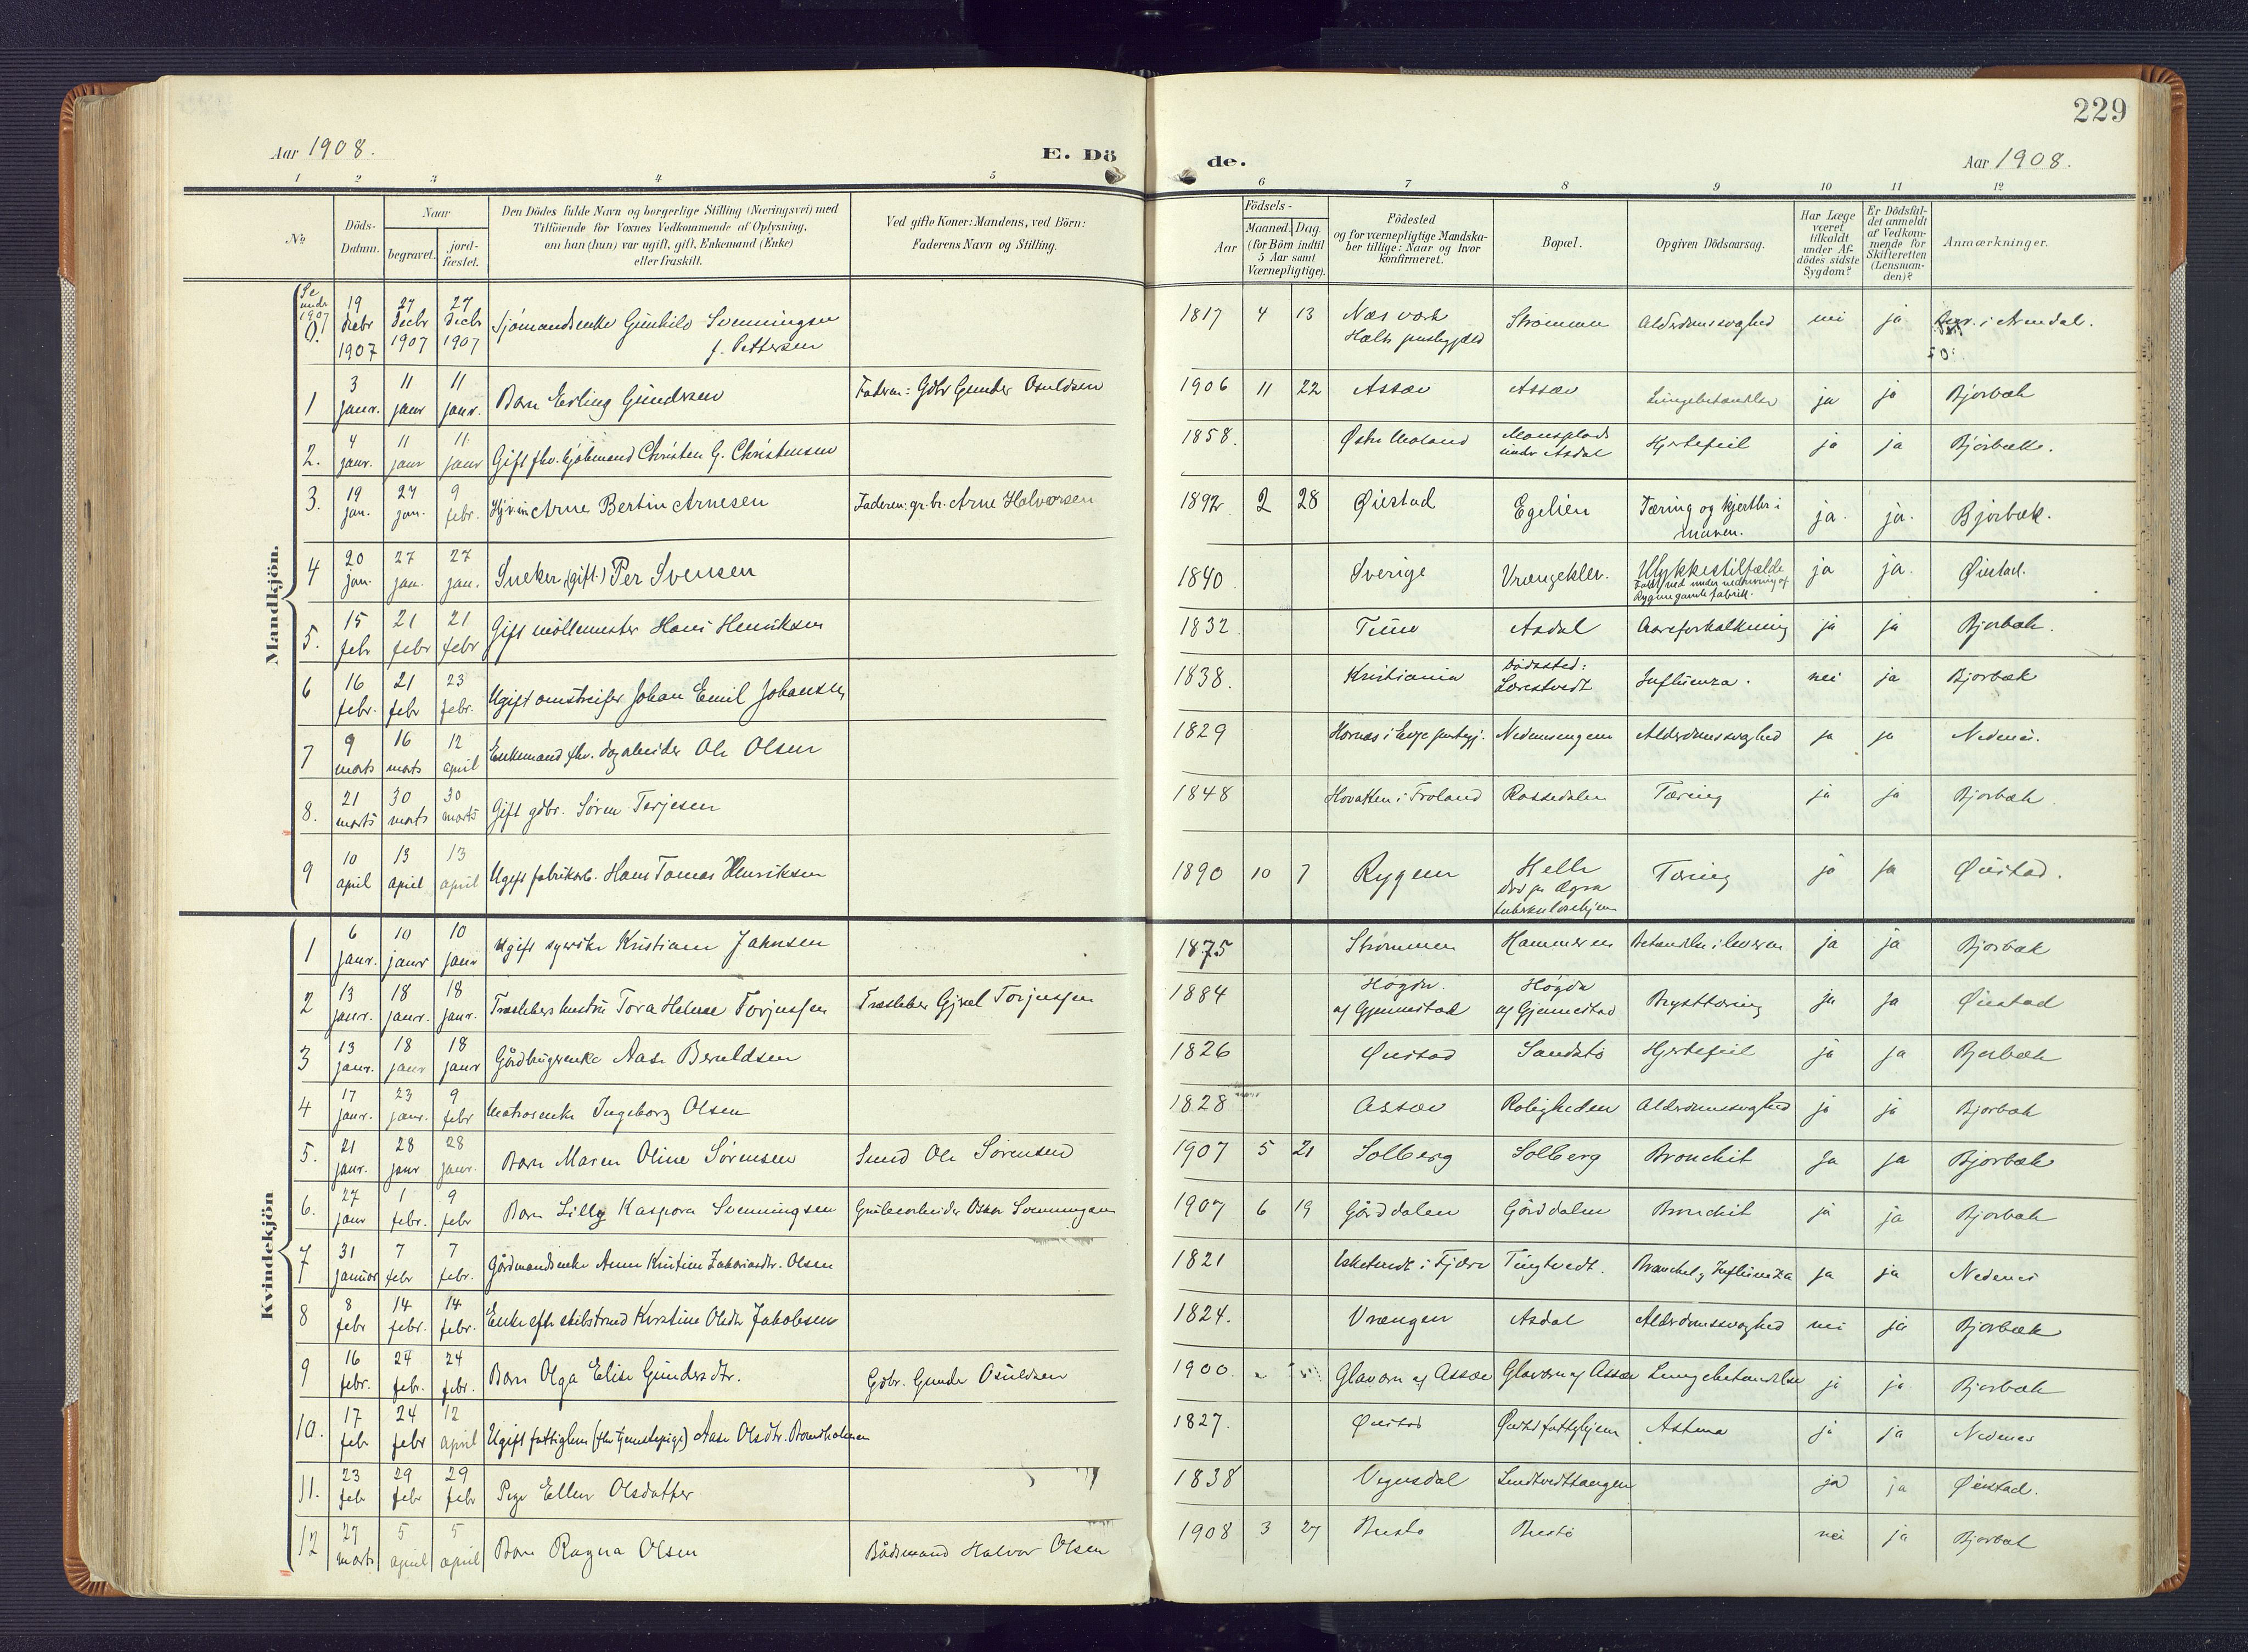 229
Aar 1908.
E. Dö
de.
Aar 1908.
1 2 3 4 5 6 7 8 9 10 11 12
No
Döds-
Datum.
Naar
begravet.
jord-
fæstet.
Den Dödes fulde Navn og borgerlige Stilling (Næringsvei) med
Tilföiende for Voxnes Vedkommende af Oplysning,
om han (hun) var ugift, gift, Enkemand (Enke)
eller fraskilt.
Ved gifte Koner: Mandens, ved Börn:
Faderens Navn og Stilling.
Födsels-
Aar
Maaned. Dag.
(for Börn indtil
5 Aar samt
Værnepligtige).
Födested
og for værnepligtige Mandska-
ber tillige: Naar og hvor
konfirmeret.
Bopæl.
Opgiven Dödsaarsag.
Har Læge
været
tilkaldt
under Af-
dödes sidste
Sygdom?
Er Dödsfal-
det anmeldt
af Vedkom-
mende for
Skifteretten
(Lensman-
den)?
Anmærkninger.
Mandkjön.
Se under 1907 0. 19 decbr 1907 27 decbr 1907 27 decbr 1907 Sjømandsenke Gunhild Svenningsen f. Pettersen 1817 4 13 Næs værk Holts prestegjeld Strømmen Alderdomssvaghed nei ja i Arendal.
1 3 janr. 11 janr 11 janr. Barn Erling Gundersen Faderen: Gdbr Gunder Osuldsen 1906 11 22 Assæv Assæv Lungebetændelse ja ja Bjorbæk
2. 4 janr. 11 janr 11 janr Gift fhv. sjømand Christen G. Christensen 1858. Østre Moland Monsplads under Asdal Hjertefeil ja ja Bjorbæk.
3. 19 jan. 27 jan. 9 febr. Arne Bertin Arnesen Faderen: gr. br. Arne Halvorsen 1892 2 28 Øiestad Egelien Tæring og kjertler i maven. ja. ja. Bjorbæk.
4 20 jan. 27 jan. 27 jan. Sneker (gift.) Per Svensen 1840 Sverige Vrængeklev. Ulykkestilfælde Faldt ned under nedrivning af Rygene gamle fabrik. ja ja. Øiestad.
5. 15 febr 21 febr 21 febr Gift møllemester Hans Henriksen 1832 Asdal Aareforkalkning ja ja Bjorbæk.
6 16 febr. 21 febr 23 febr. Ugift omstreifer Johan Emil Johansen 1838. Kristiania Dødssted: Lærestvedt Influenza. nei ja Bjorbæk
7 9 marts 16 marts 12 april Enkemand fhv. dagarbeider Ole Olsen 1829 Hornæs i Evje prestegj. Nedenesengene Alderdomssvaghed ja ja Nedenes.
8. 21 marts 30 marts 30 marts Gift gdbr. Søren Terjesen 1848 Hovatten i Froland Rossedalen Tæring ja ja Bjorbæk.
9 10 april 13 april 13 april Ugift fabrikarb. Hans Tomas Henriksen 1890 10 7 Rygene Helle tuberkulosehjem Tæring ja ja Øiestad.
Kvindekjön
1 6 janr. 10 janr 10 janr Ugift syerske Kristiane Jahnsen 1875 Strømmen Hammeren Betændelse i leveren ja ja Bjorbæk
2 13 janr. 18 janr. 18 janr. Træslibers hustru Tora Helene Torjussen Træsliber Gjæel Torjussen 1884 Høgda. af Gjennestad Høgda af Gjennestad Brysttæring ja ja Øiestad
3 13 janr. 18 janr 18 janr Gårdbrugerenke Aase Beruldsen 1826 Øiestad Sandstø Hjertefeil ja ja Bjorbæk
4 17 janr. 23 janr. 9 febr Matrosenke Ingeborg Olsen 1828 Assæv Roligheden Alderdomssvaghed ja ja Bjorbæk
5. 21 janr. 28 janr 28 janr. Barn Maren Oline Sørensen Smed Ole Sørensen 1907 5 21 Solberg Solberg Bronchit ja ja Bjorbæk
6. 27 janr 1 febr. 9 febr Barn Lilly Kaspora Svenningsen Grubearbeider Oskar Svenningsen 1907 6 19 Gårddalen Gårddalen Bronchit ja ja Bjorbæk
7 31 januar 7 febr 7 febr. Gårdmandsenke Anne Kristine Zakariasdtr. Olsen 1821 i Fjære Tingtvedt. Bronchit og Influenza ja ja Nedenes
8 8 febr 14 febr. 14 febr. Enke efter skibstmd Kirstine Olsdtr Jakobsen 1824. Vrængen Asdal Alderdomssvaghed nei ja Bjorbæk
9 16 febr. 24 feb. 24 feb. Barn Olga Elise Gundersdtr. Gdbr. Gunder Osuldsen 1900. Glavorn af Assæv Glavorn af Assæv Lungebetændelse ja ja Bjorbæk
10. 17 feb 24 febr 12 april Ugift fattiglem (fhv tjenestepige) Aase Olsdtr. 1827. Øiestad Øiestad fattighjem Astma ja ja Nedenes
11. 23 feb 29 febr 29 febr Pige Ellen Olsdatter 1838 Vegusdal Lundtvedthaugen ja ja Øiestad.
12 27 marts 5 april 5 april Barn Ragna Olsen Bådsmand Halvor Olsen 1908 3 27 Bustø Bustø nei ja Bjorbæk